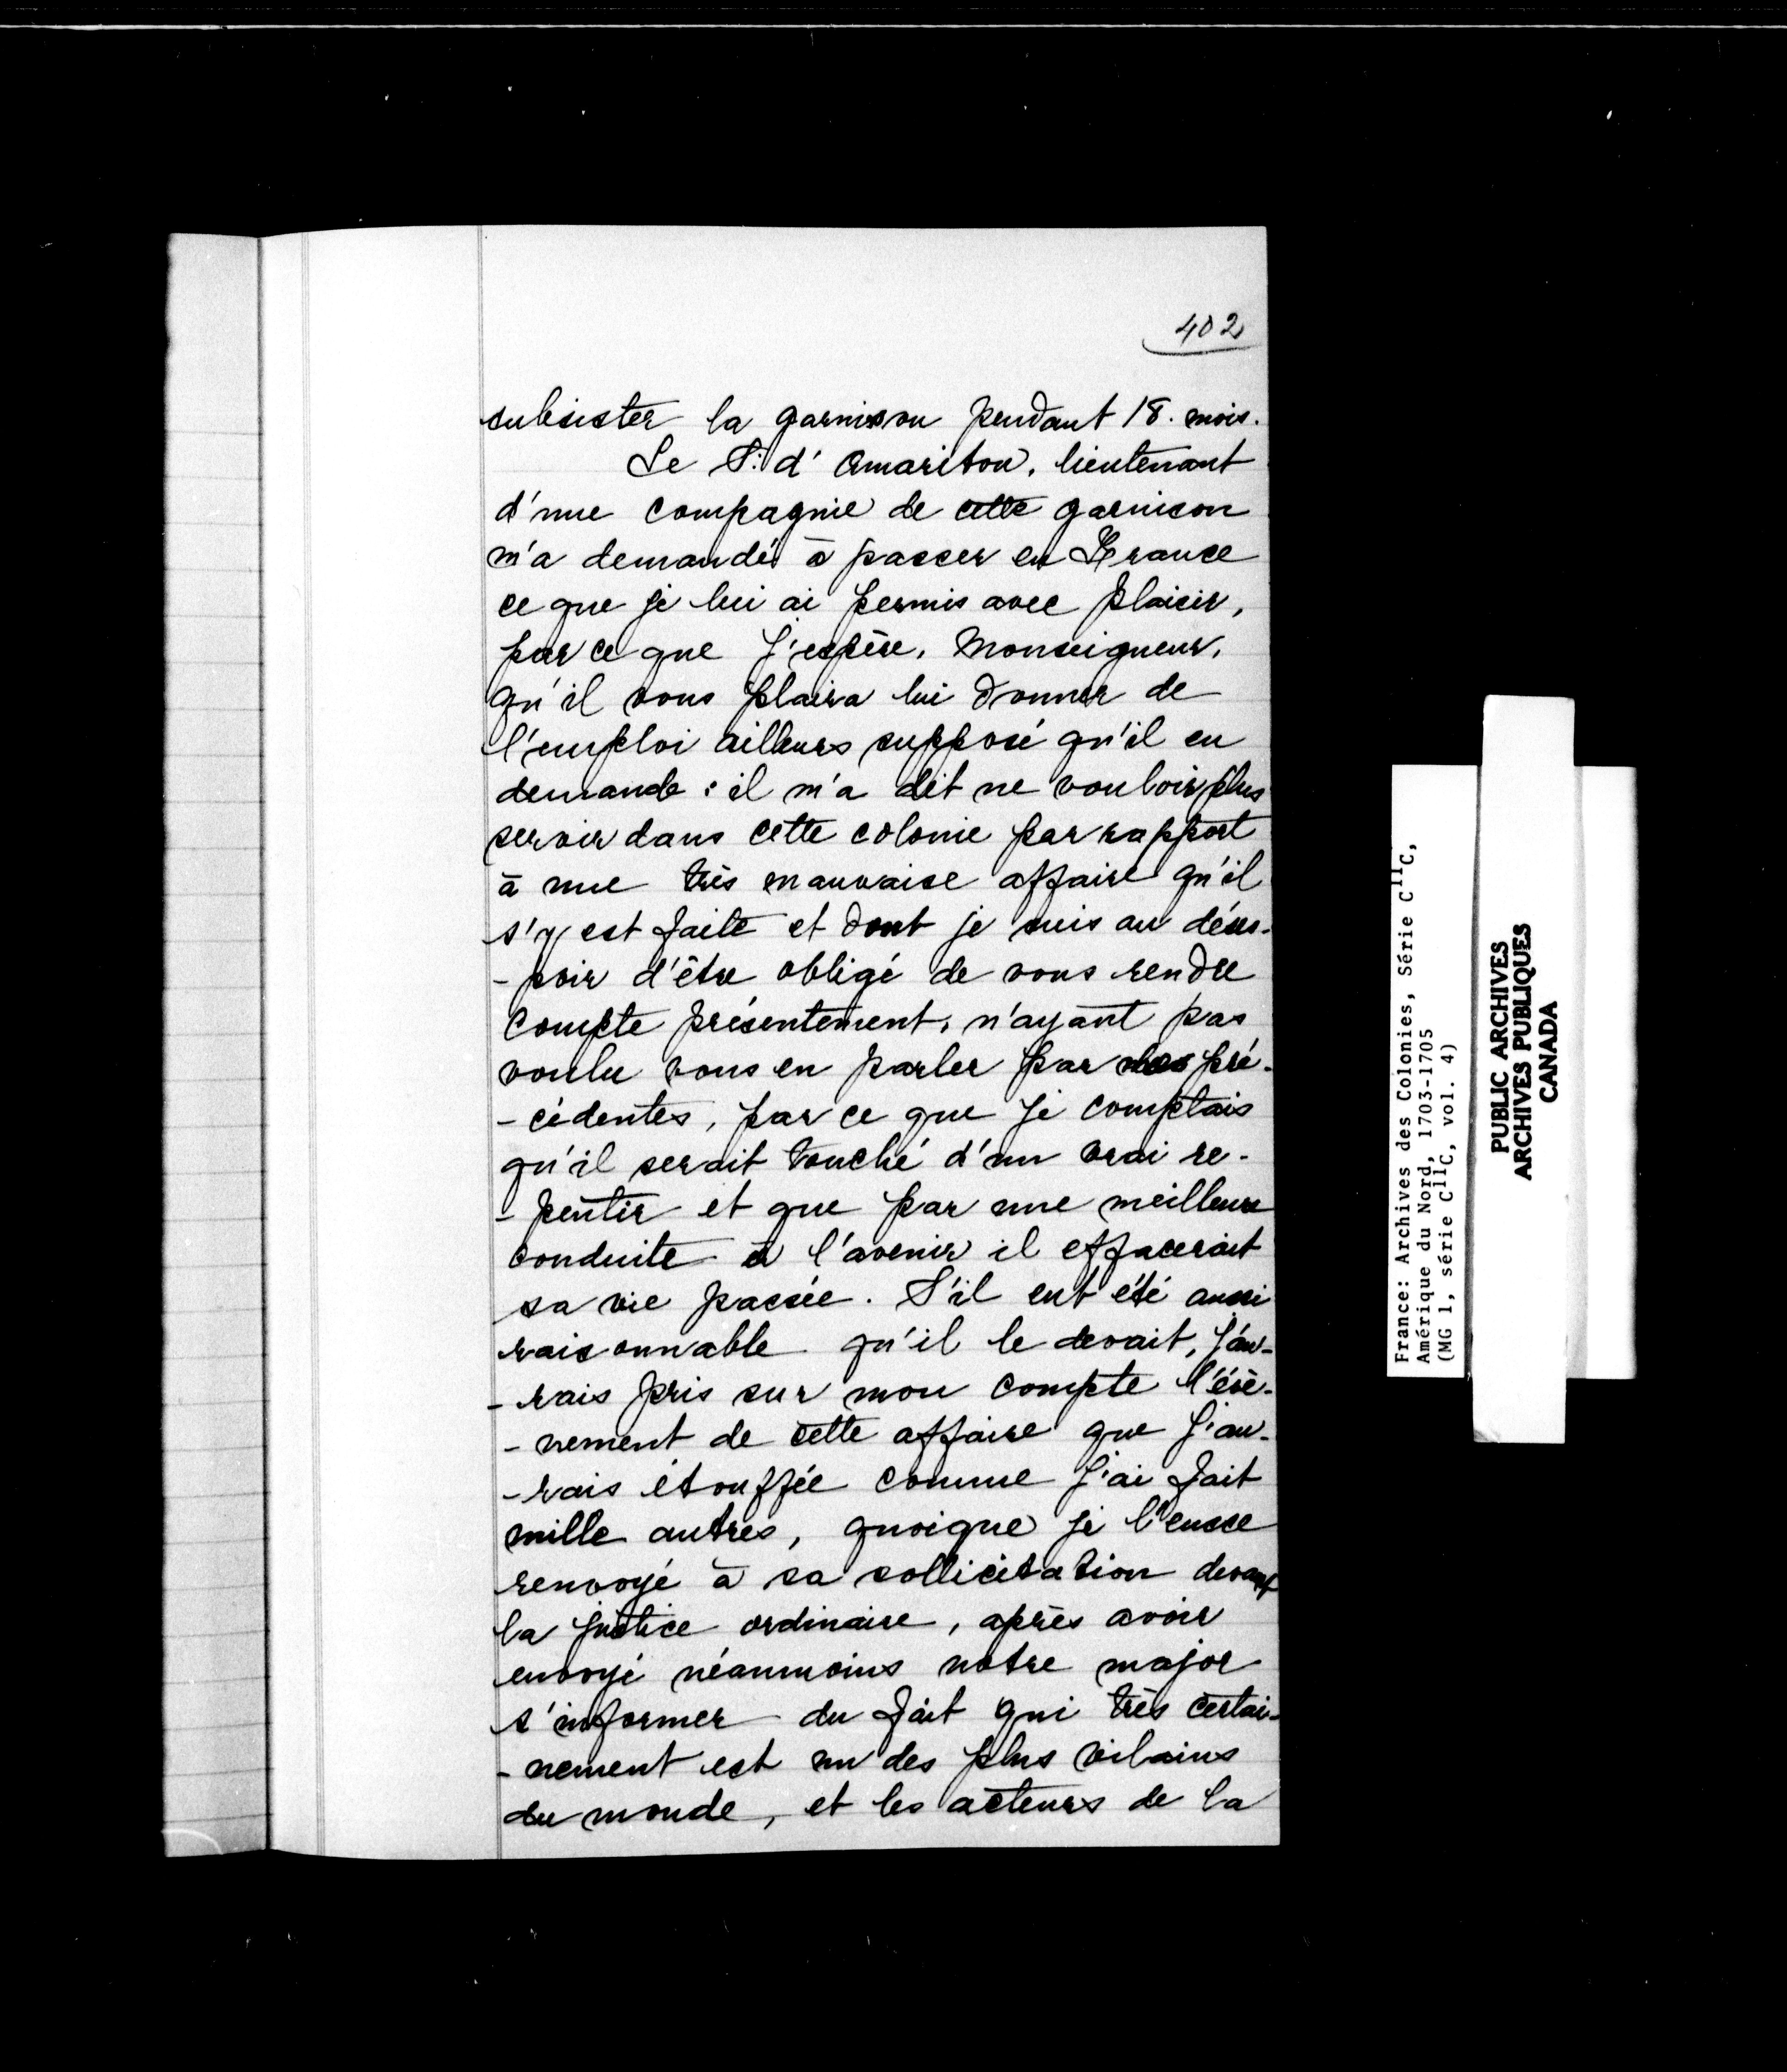 402
subsister la garnison pendant 18. mois.
Le S.r d'Amariton, lieutenant
d'une compagnie de cette garnison
m'a demandé à passer en France
ce que je lui ai permis avec plaisir,
par ce que j'espère, Monseigneur,
qu'il vous plaira lui donner de
l'emploi ailleurs supposé qu'il en
demande : il m'a dit ne vouloir plus
servir dans cette colonie par rapport
à une très mauvaise affaire qu'il
s'y est faite et dont je suis au déses-
-poir d'être obligé de vous rendre
compte présentement, n'ayant pas
voulu vous en parler par mes pré-
-cédentes, par ce que je comptais
qu'il serait touché d'un vrai re-
-pentir et que par une meilleure
conduite à l'avenir il effacerait
sa vie passée. S'il eut été aussi
raisonnable qu'il le devait, j'au-
-rais pris sur mon compte l'évè-
-nement de cette affaire que j'au-
-rais étouffée comme j'ai fait
mille autres, quoique je l'eusse
renvoyé à sa sollicitation devant
la justice ordinaire, après avoir
envoyé néanmoins notre major
s'informer du fait qui très certai-
-nement est un des plus vilains
du monde, et les acteurs de la
France: Archives des Colonies, Série C11C,
Amérique du Nord, 1703-1705
(MG 1, série C11C, vol. 4)
PUBLIC ARCHIVES
ARCHIVES PUBLIQUES
CANADA